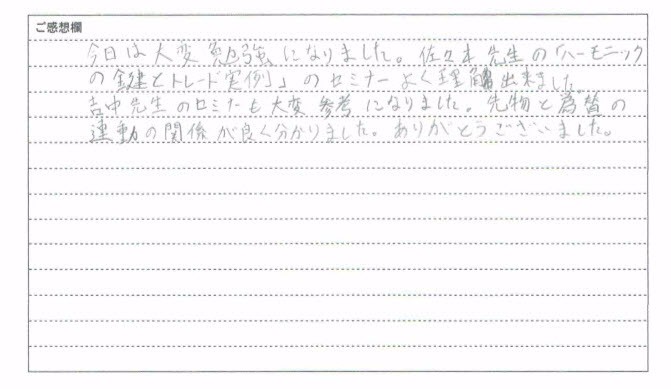 ご感想欄
今日は大変勉強になりました。佐々木先生の「ハーモニック
の鍵とトレード実例」のセミナーよく理解出来ました。
吉中先生のセミナーも大変参考になりました。先物と為替の
連動の関係が良く分かりました。ありがとうございました。